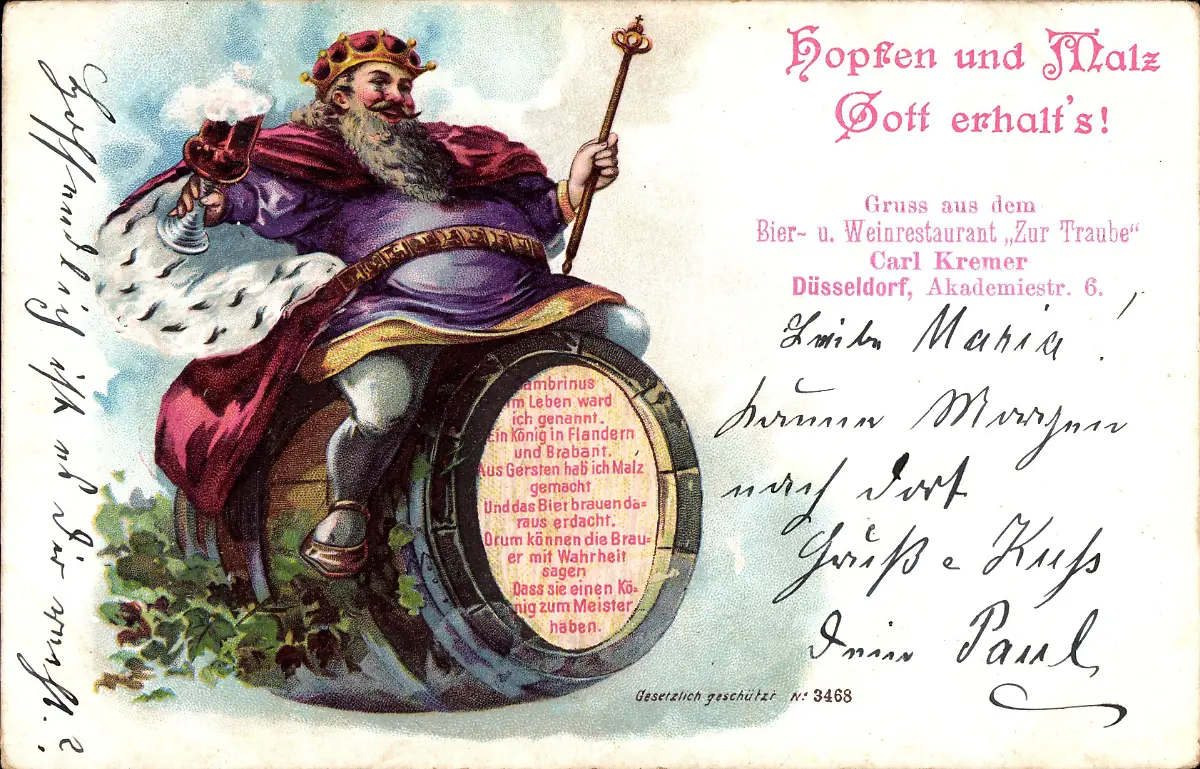 Hopfen und Malz
Gott erhalt's!
Gruss aus dem
Bier- u. Weinrestaurant „Zur Traube“
Carl Kremer
Düsseldorf, Akademiestr. 6.
Liebe Maria!
komme Morgen
nach dort
Gruß u Kuß
Dein Paul
Gambrinus
Im Leben ward
ich genannt.
Ein König in Flandern
und Brabant.
Aus Gersten hab ich Malz
gemacht
Und das Bier brauen da=
raus erdacht.
Drum können die Brau=
er mit Wahrheit
sagen
Dass sie einen Kö=
nig zum Meister
haben.
Gesetzlich geschützt No 3468
Hoffendlich ist dir